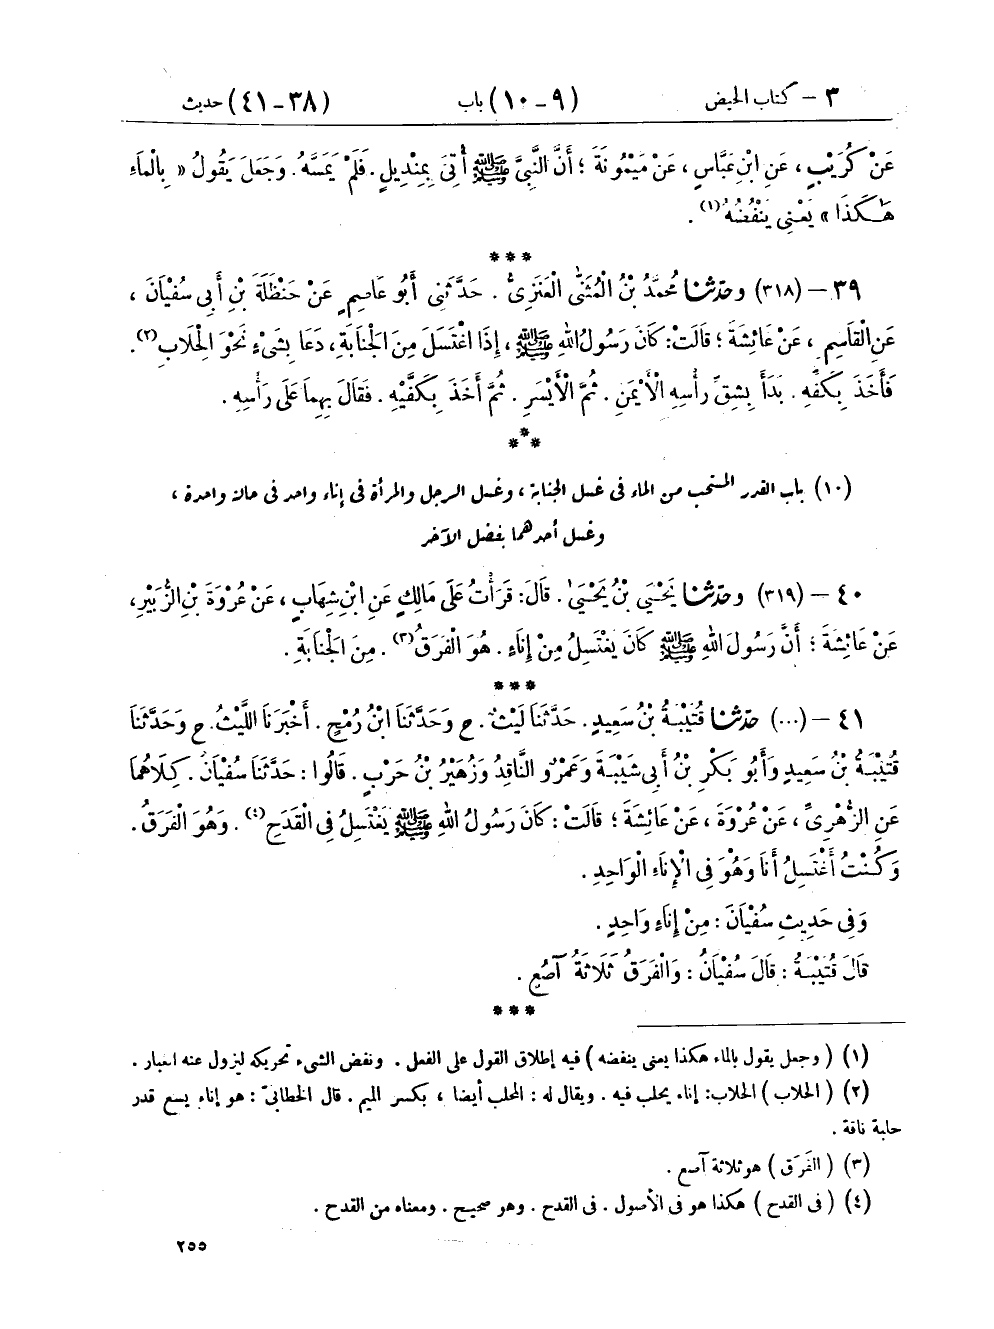 ٣ – كتاب الحيض (٩ – ١٠) باب (٣٨ – ٤١) حديث
عَنْ كُرَيْبٍ ، عَنِ ابْنِ عَبَّاسٍ ، عَنْ مَيْمُونَةَ ؛ أَنَّ النَّبِيَّ ﷺ أُتِىَ بِمِنْدِيلٍ . فَلَمْ يَمَسَّهُ . وَجَعَلَ يَقُولُ « بِالْمَاءِ
هَٰكَذَا » يَعْنِي يَنْفُضُهُ(١) .
***
٣٩ – (٣١٨) وحدّثنا مُحَمَّدُ بْنُ الْمُثَنَّى الْعَنَزِىُّ . حَدَّثَنِي أَبُو عَاصِمٍ عَنْ حَنْظَلَةَ بْنِ أَبِي سُفْيَانَ ،
عَنِ الْقَاسِمِ ، عَنْ عَائِشَةَ ؛ قَالَتْ : كَانَ رَسُولُ اللهِ ﷺ ، إِذَا اغْتَسَلَ مِنَ الْجَنَابَةِ ، دَعَا بِشَىْءٍ نَحْوَ الْحِلَابِ(٢) .
فَأَخَذَ بِكَفِّهِ . بَدَأَ بِشِقِّ رَأْسِهِ الْأَيْمَنِ . ثُمَّ الْأَيْسَرِ . ثُمَّ أَخَذَ بِكَفَّيْهِ . فَقَالَ بِهِمَا عَلَى رَأْسِهِ .
***
(١٠) باب القدر المستحب من الماء فى غسل الجنابة ، وغسل الرجل والمرأة فى إناء واحد فى حالة واحدة ،
وغسل أحدهما بفضل الآخر
٤٠ – (٣١٩) وحدّثنا يَحْيَى بْنُ يَحْيَىٰ . قَالَ : قَرَأْتُ عَلَى مَالِكٍ عَنِ ابْنِ شِهَابٍ ، عَنْ عُرْوَةَ بْنِ الزُّبَيْرِ ،
عَنْ عَائِشَةَ ؛ أَنَّ رَسُولَ اللهِ ﷺ كَانَ يَغْتَسِلُ مِنْ إِنَاءٍ . هُوَ الْفَرَقُ(٣) . مِنَ الْجَنَابَةِ .
***
٤١ – (...) حدّثنا قُتَيْبَةُ بْنُ سَعِيدٍ . حَدَّثَنَا لَيْثٌ . ح وَحَدَّثَنَا ابْنُ رُمْحٍ . أَخْبَرَنَا اللَّيْثُ . ح وَحَدَّثَنَا
قُتَيْبَةُ بْنُ سَعِيدٍ وَأَبُو بَكْرِ بْنُ أَبِي شَيْبَةَ وَعَمْرٌو النَّاقِدُ وَزُهَيْرُ بْنُ حَرْبٍ . قَالُوا : حَدَّثَنَا سُفْيَانُ . كِلَاهُمَا
عَنِ الزُّهْرِىِّ ، عَنْ عُرْوَةَ ، عَنْ عَائِشَةَ ؛ قَالَتْ : كَانَ رَسُولُ اللهِ ﷺ يَغْتَسِلُ فِى الْقَدَحِ(٤) . وَهُوَ الْفَرَقُ .
وَكُنْتُ أَغْتَسِلُ أَنَا وَهُوَ فِى الْإِنَاءِ الْوَاحِدِ .
وَفِى حَدِيثِ سُفْيَانَ : مِنْ إِنَاءٍ وَاحِدٍ .
قَالَ قُتَيْبَةُ : قَالَ سُفْيَانُ : وَالْفَرَقُ ثَلَاثَةُ آصُعٍ .
***
(١) ( وجعل يقول بالماء هكذا يعنى ينفضه ) فيه إطلاق القول على الفعل . ونفض الشىء تحريكه ليزول عنه الغبار .
(٢) ( الحلاب ) الحلاب : إناء يحلب فيه . ويقال له : المحلب أيضا ، بكسر الميم . قال الخطابىّ : هو إناء يسع قدر
حلبة ناقة .
(٣) ( الفَرَق ) هو ثلاثة آصع .
(٤) ( فى القدح ) هكذا هو فى الأصول . فى القدح . وهو صحيح . ومعناه من القدح .
٢٥٥